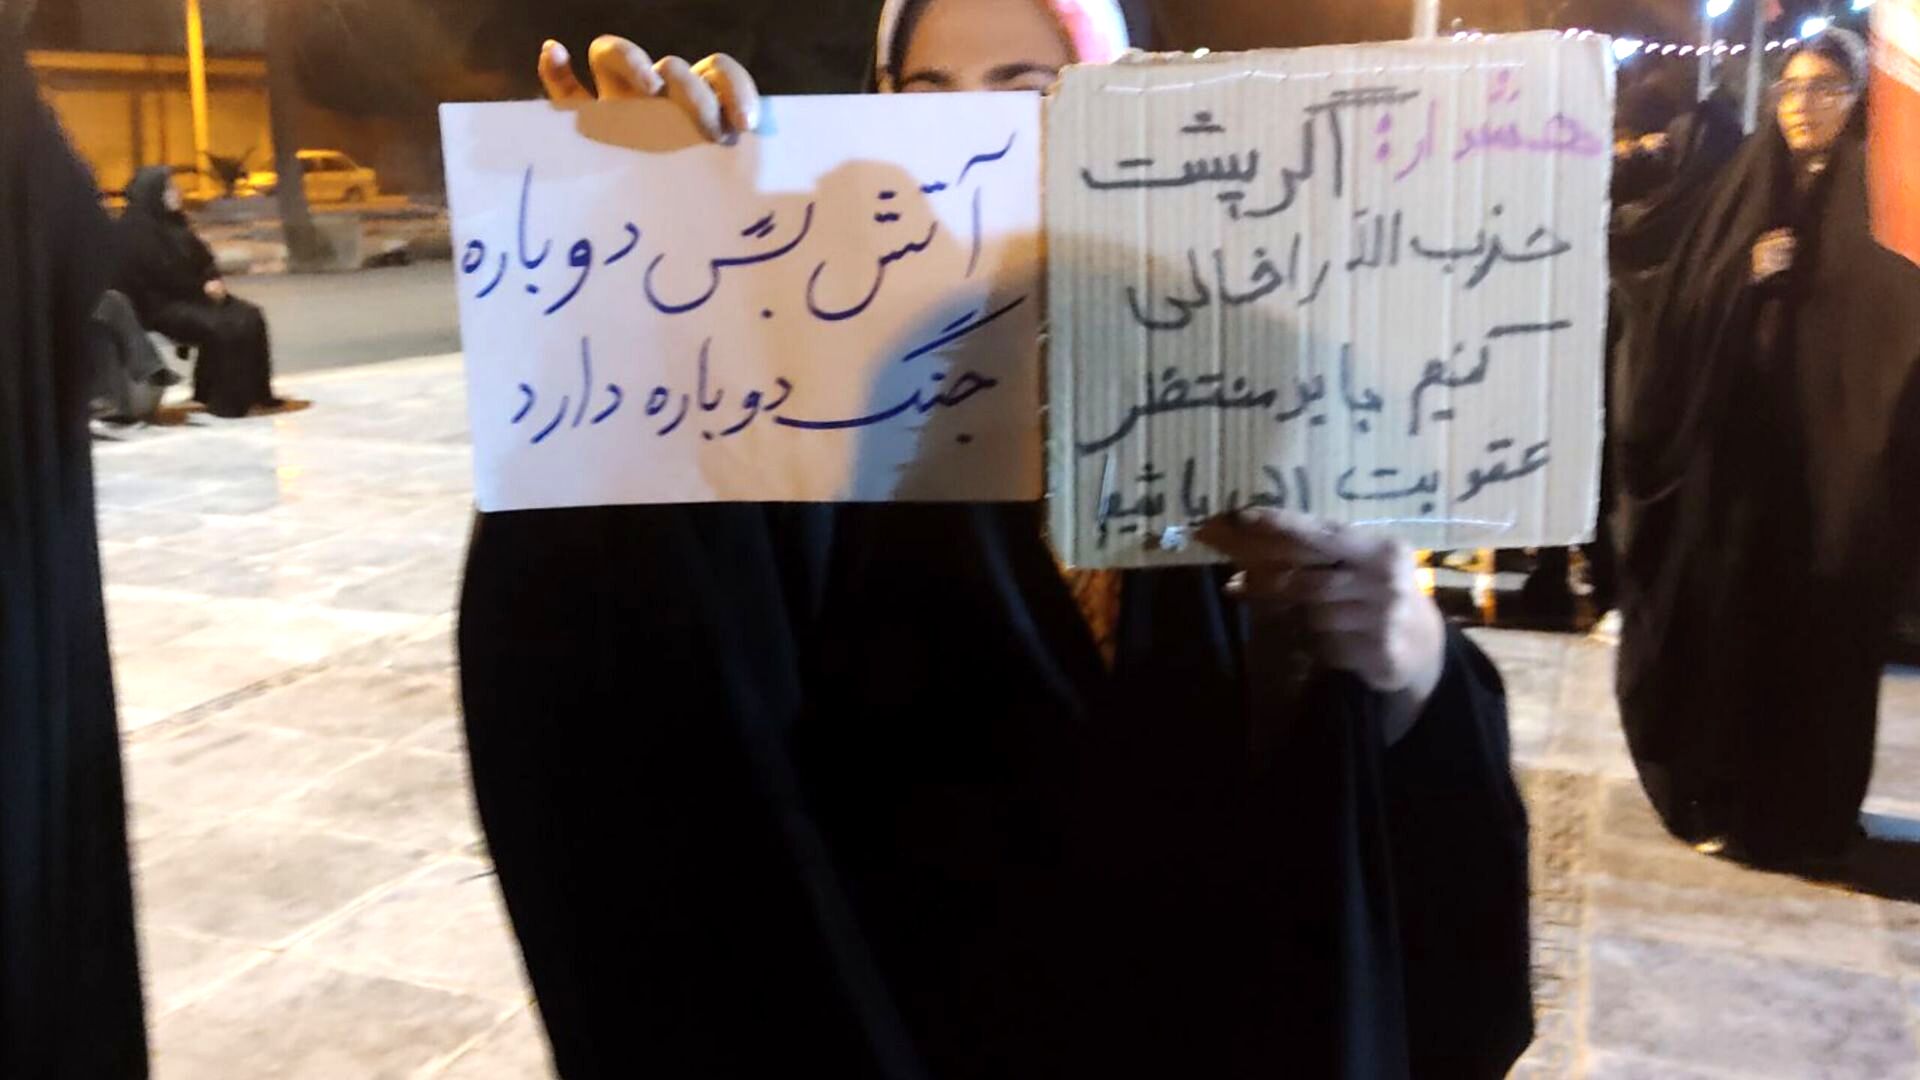 هشدار: اگر پشت
حزب الله را خالی
کنیم باید منتظر
عقوبت الهی باشیم
آتش بَس دوباره
جنگ دوباره دارد